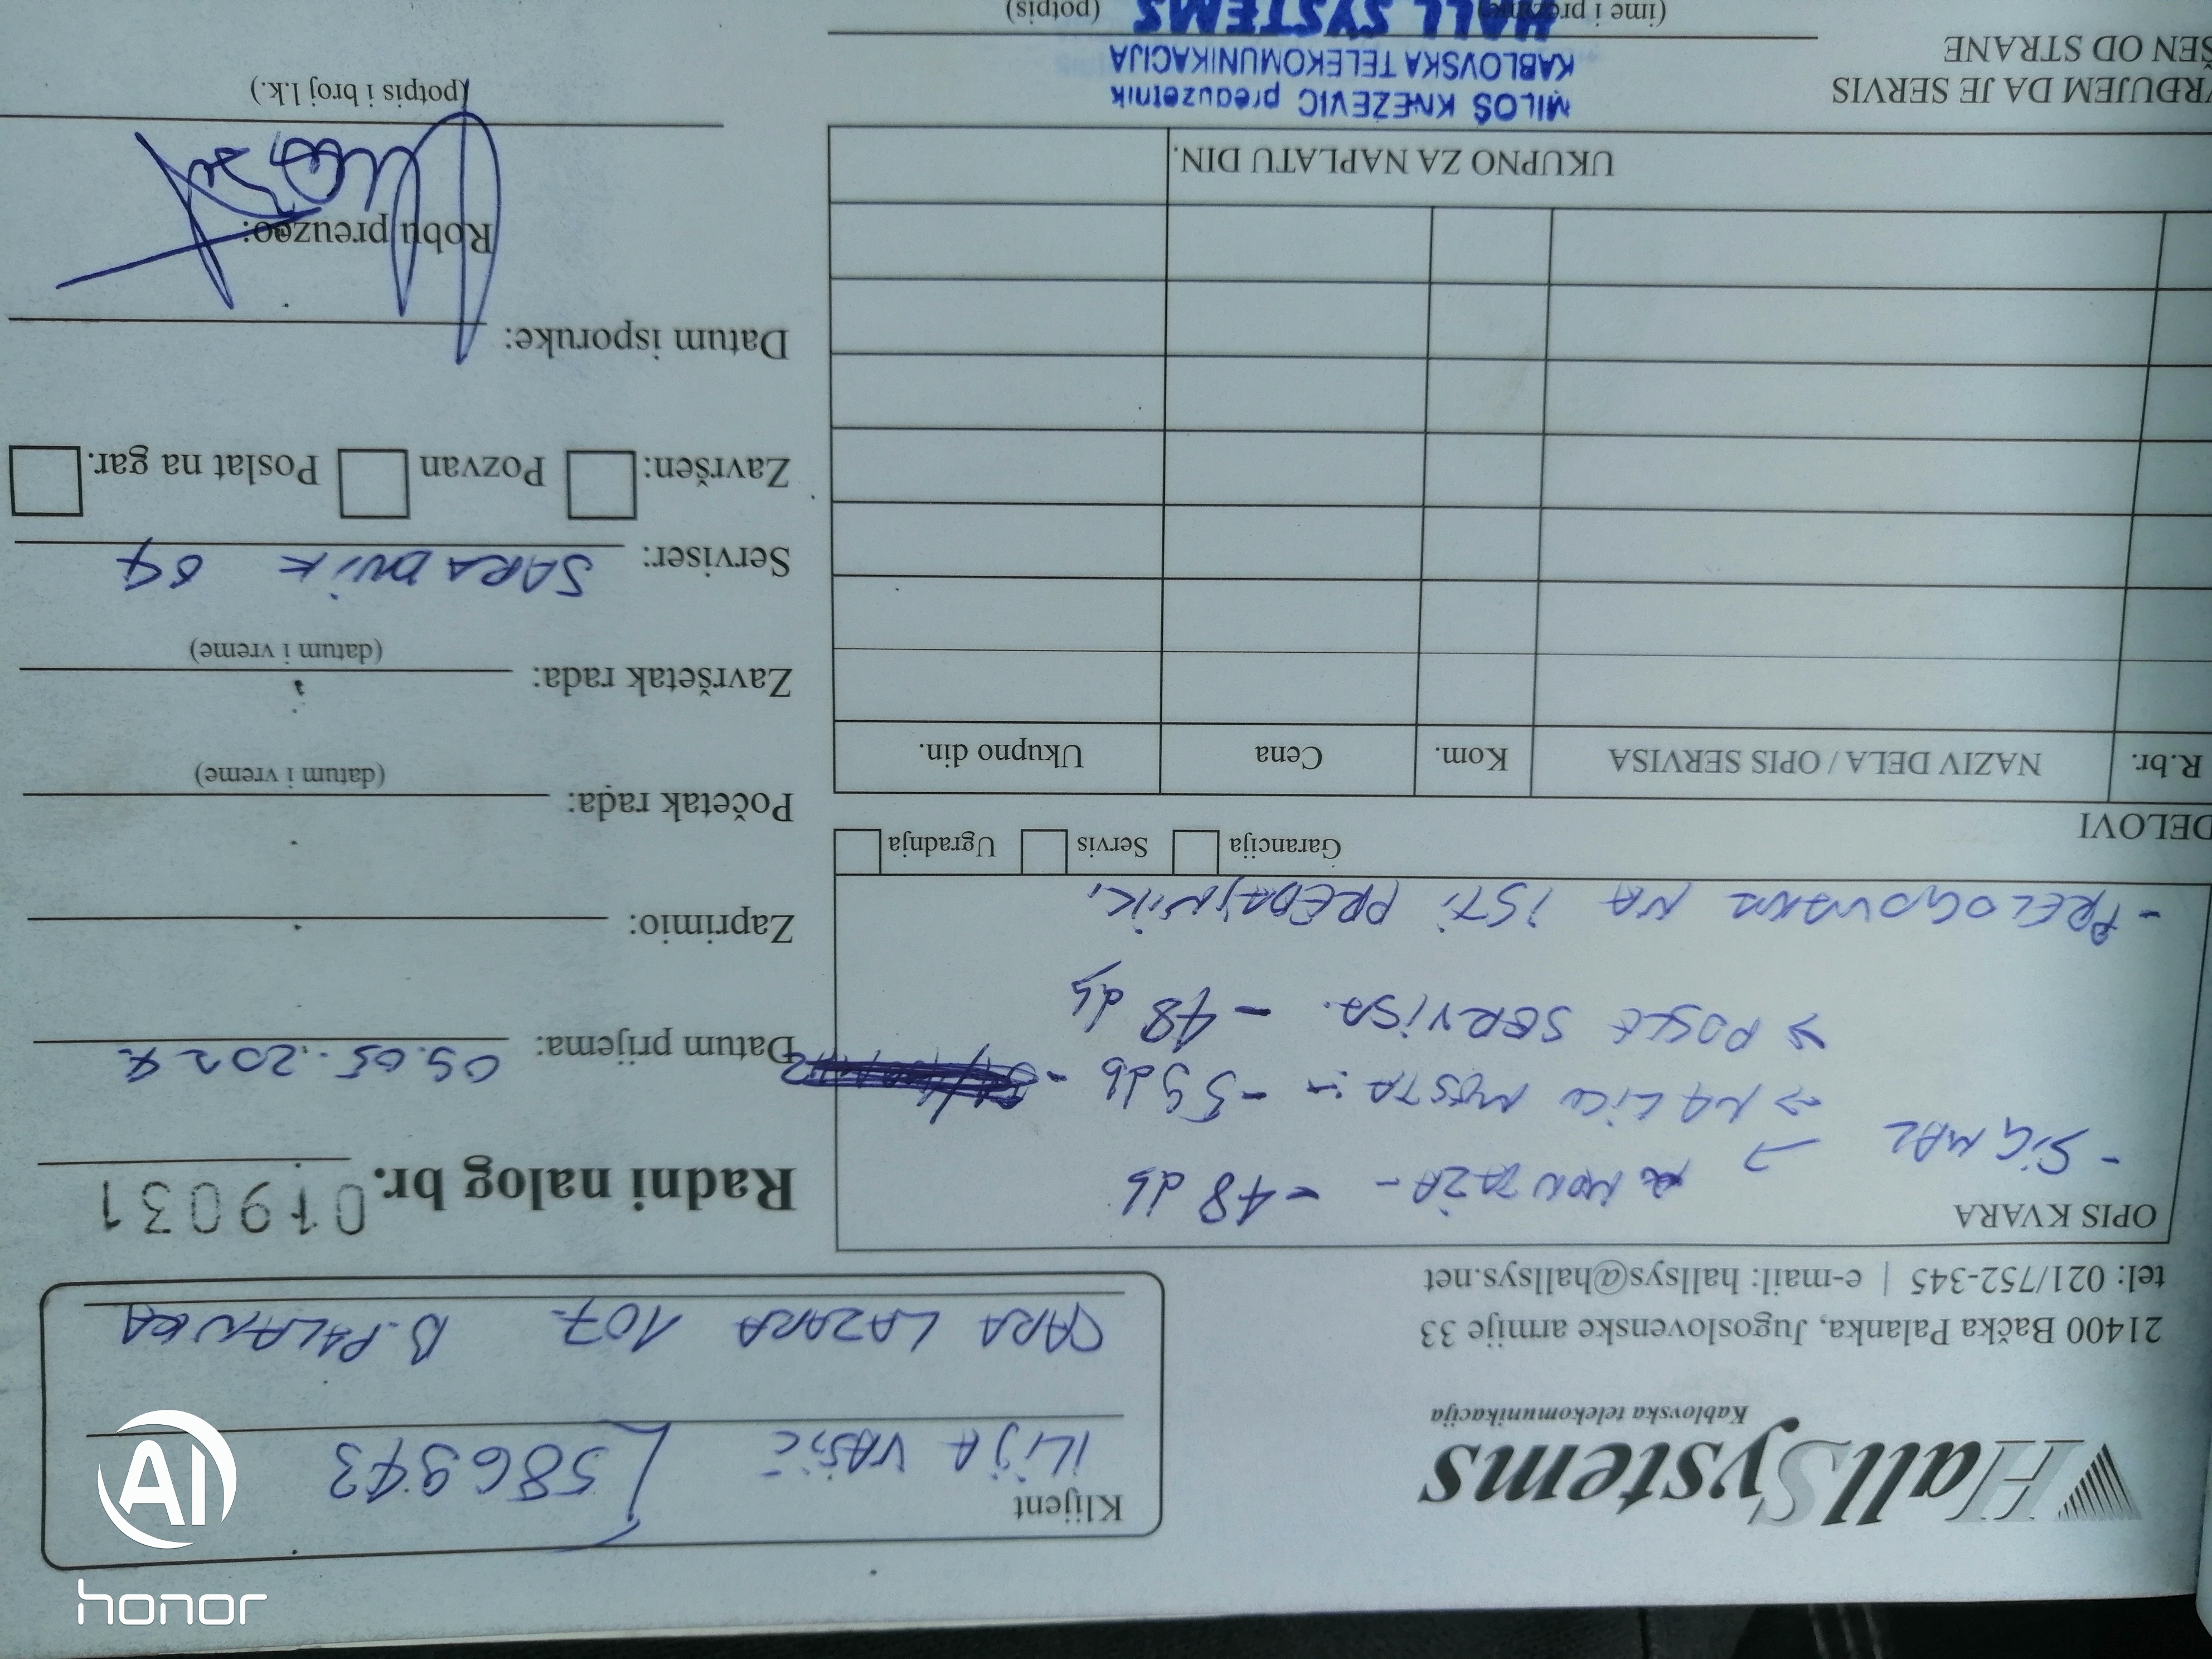 HallSystems
Kablovska telekomunikacija
21400 Bačka Palanka, Jugoslovenske armije 33
tel: 021/752-345 | e-mail: hallsys@hallsys.net
Klijent
ILIJA VASIĆ 5869
CARA LAZARA 107 B. PALANKA
Radni nalog br. 019031
OPIS KVARA
- SIGNAL → MONTAŽA - -48 db
→ NA LICU MESTA :- -59 db -
→ POSLE SERVISA. -48 db
- PRELOGOVANA NA ISTI PREDAJNIK.
Datum prijema: 09.05.2024.
Zaprimio:
Početak rada:
(datum i vreme)
Završetak rada:
(datum i vreme)
Serviser: SARADNIK 04
Završen: Pozvan Poslat na gar.
Datum isporuke:
Robu preuzeo:
(potpis i broj l.k.)
Garancija Servis Ugradnja
DELOVI
R.br. NAZIV DELA / OPIS SERVISA Kom. Cena Ukupno din.
UKUPNO ZA NAPLATU DIN.
RĐUJEM DA JE SERVIS
ŠEN OD STRANE
MILOŠ KNEŽEVIĆ preduzetnik
KABLOVSKA TELEKOMUNIKACIJA
HALL SYSTEMS
(ime i prezime) (potpis)
AI
honor